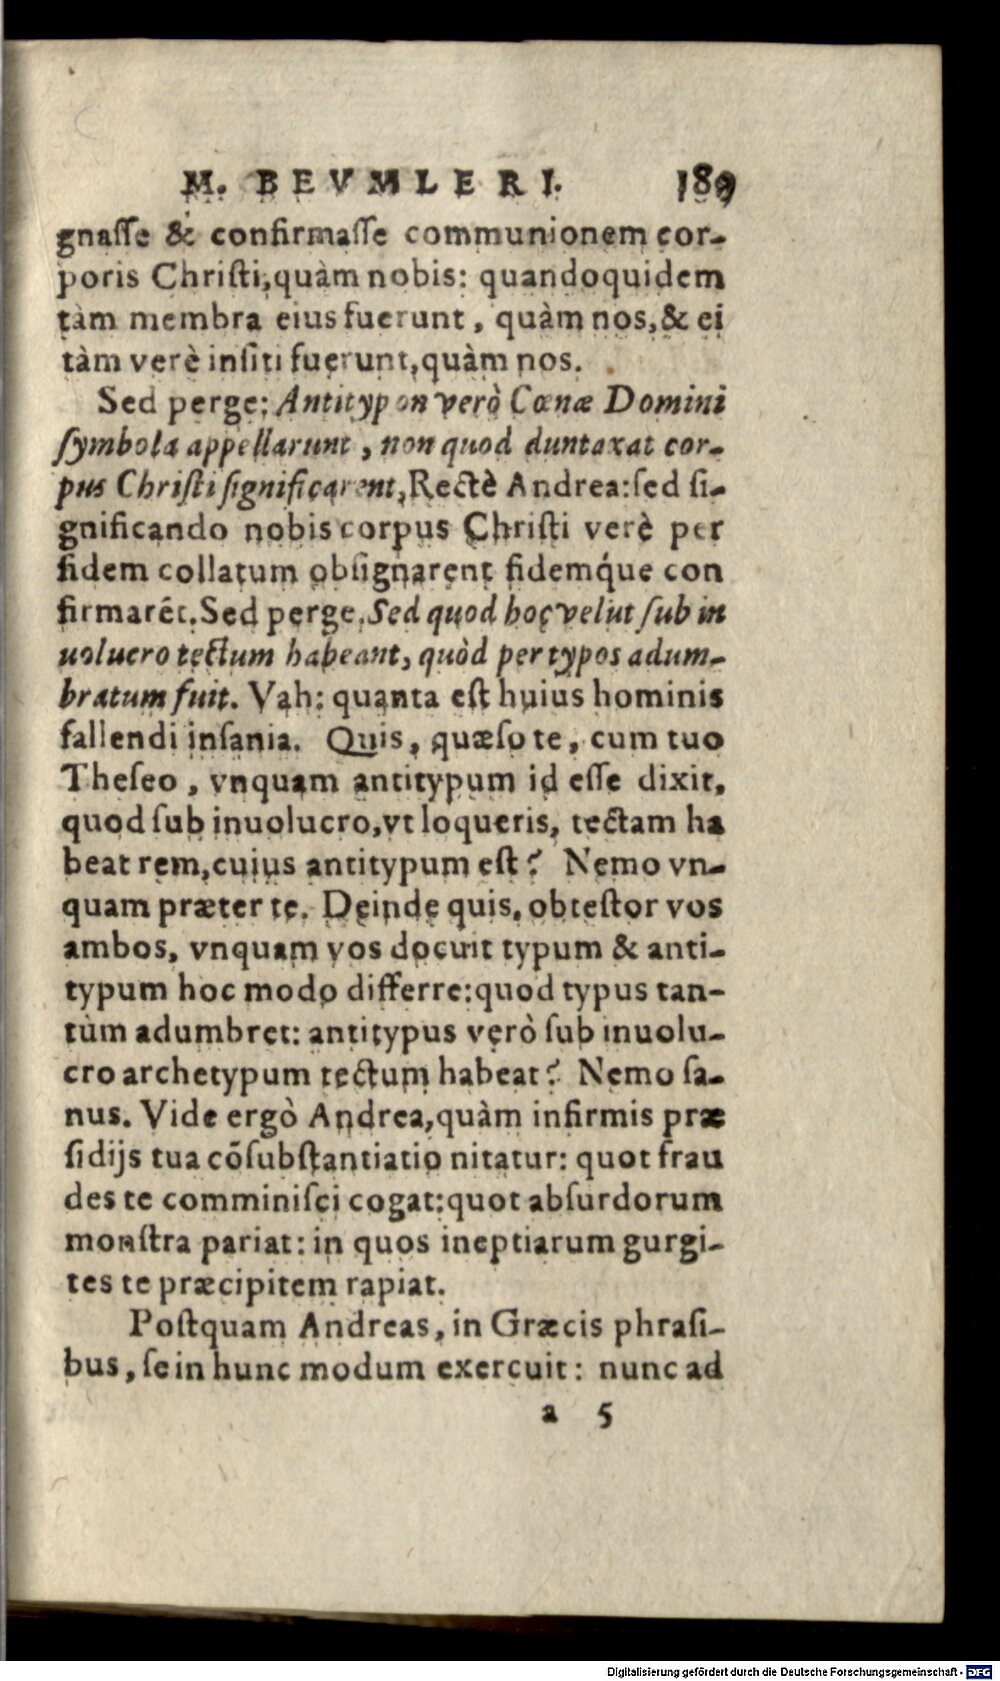 M. BEVMLERI. 189
gnaſſe & confirmaſſe communionem cor-
poris Chriſti, quàm nobis: quandoquidem
tàm membra eius fuerunt, quàm nos, & ei
tàm verè inſiti fuerunt, quàm nos.
Sed perge: Antitypon verò Cœnæ Domini
ſymbola appellarunt, non quod duntaxat cor-
pus Chriſti ſignificarent, Rectè Andrea: ſed ſi-
gnificando nobis corpus Chriſti verè per
fidem collatum obſignarent fidemq́ue con
firmarēt. Sed perge. Sed quod hoc velut ſub in
uolucro tectum habeant, quòd per typos adum-
bratum fuit. Vah: quanta eſt huius hominis
fallendi inſania. Quis, quæſo te, cum tuo
Theſeo, vnquam antitypum id eſſe dixit,
quod ſub inuolucro, vt loqueris, tectam ha
beat rem, cuius antitypum eſt? Nemo vn-
quam præter te. Deinde quis, obteſtor vos
ambos, vnquam vos docuit typum & anti-
typum hoc modo differre: quod typus tan-
tùm adumbret: antitypus verò ſub inuolu-
cro archetypum tectum habeat? Nemo ſa-
nus. Vide ergò Andrea, quàm infirmis præ
ſidijs tua cōſubſtantiatio nitatur: quot frau
des te comminiſci cogat: quot abſurdorum
monſtra pariat: in quos ineptiarum gurgi-
tes te præcipitem rapiat.
Poſtquam Andreas, in Græcis phraſi-
bus, ſe in hunc modum exercuit: nunc ad
a 5
Digitalisierung gefördert durch die Deutsche Forschungsgemeinschaft - DFG